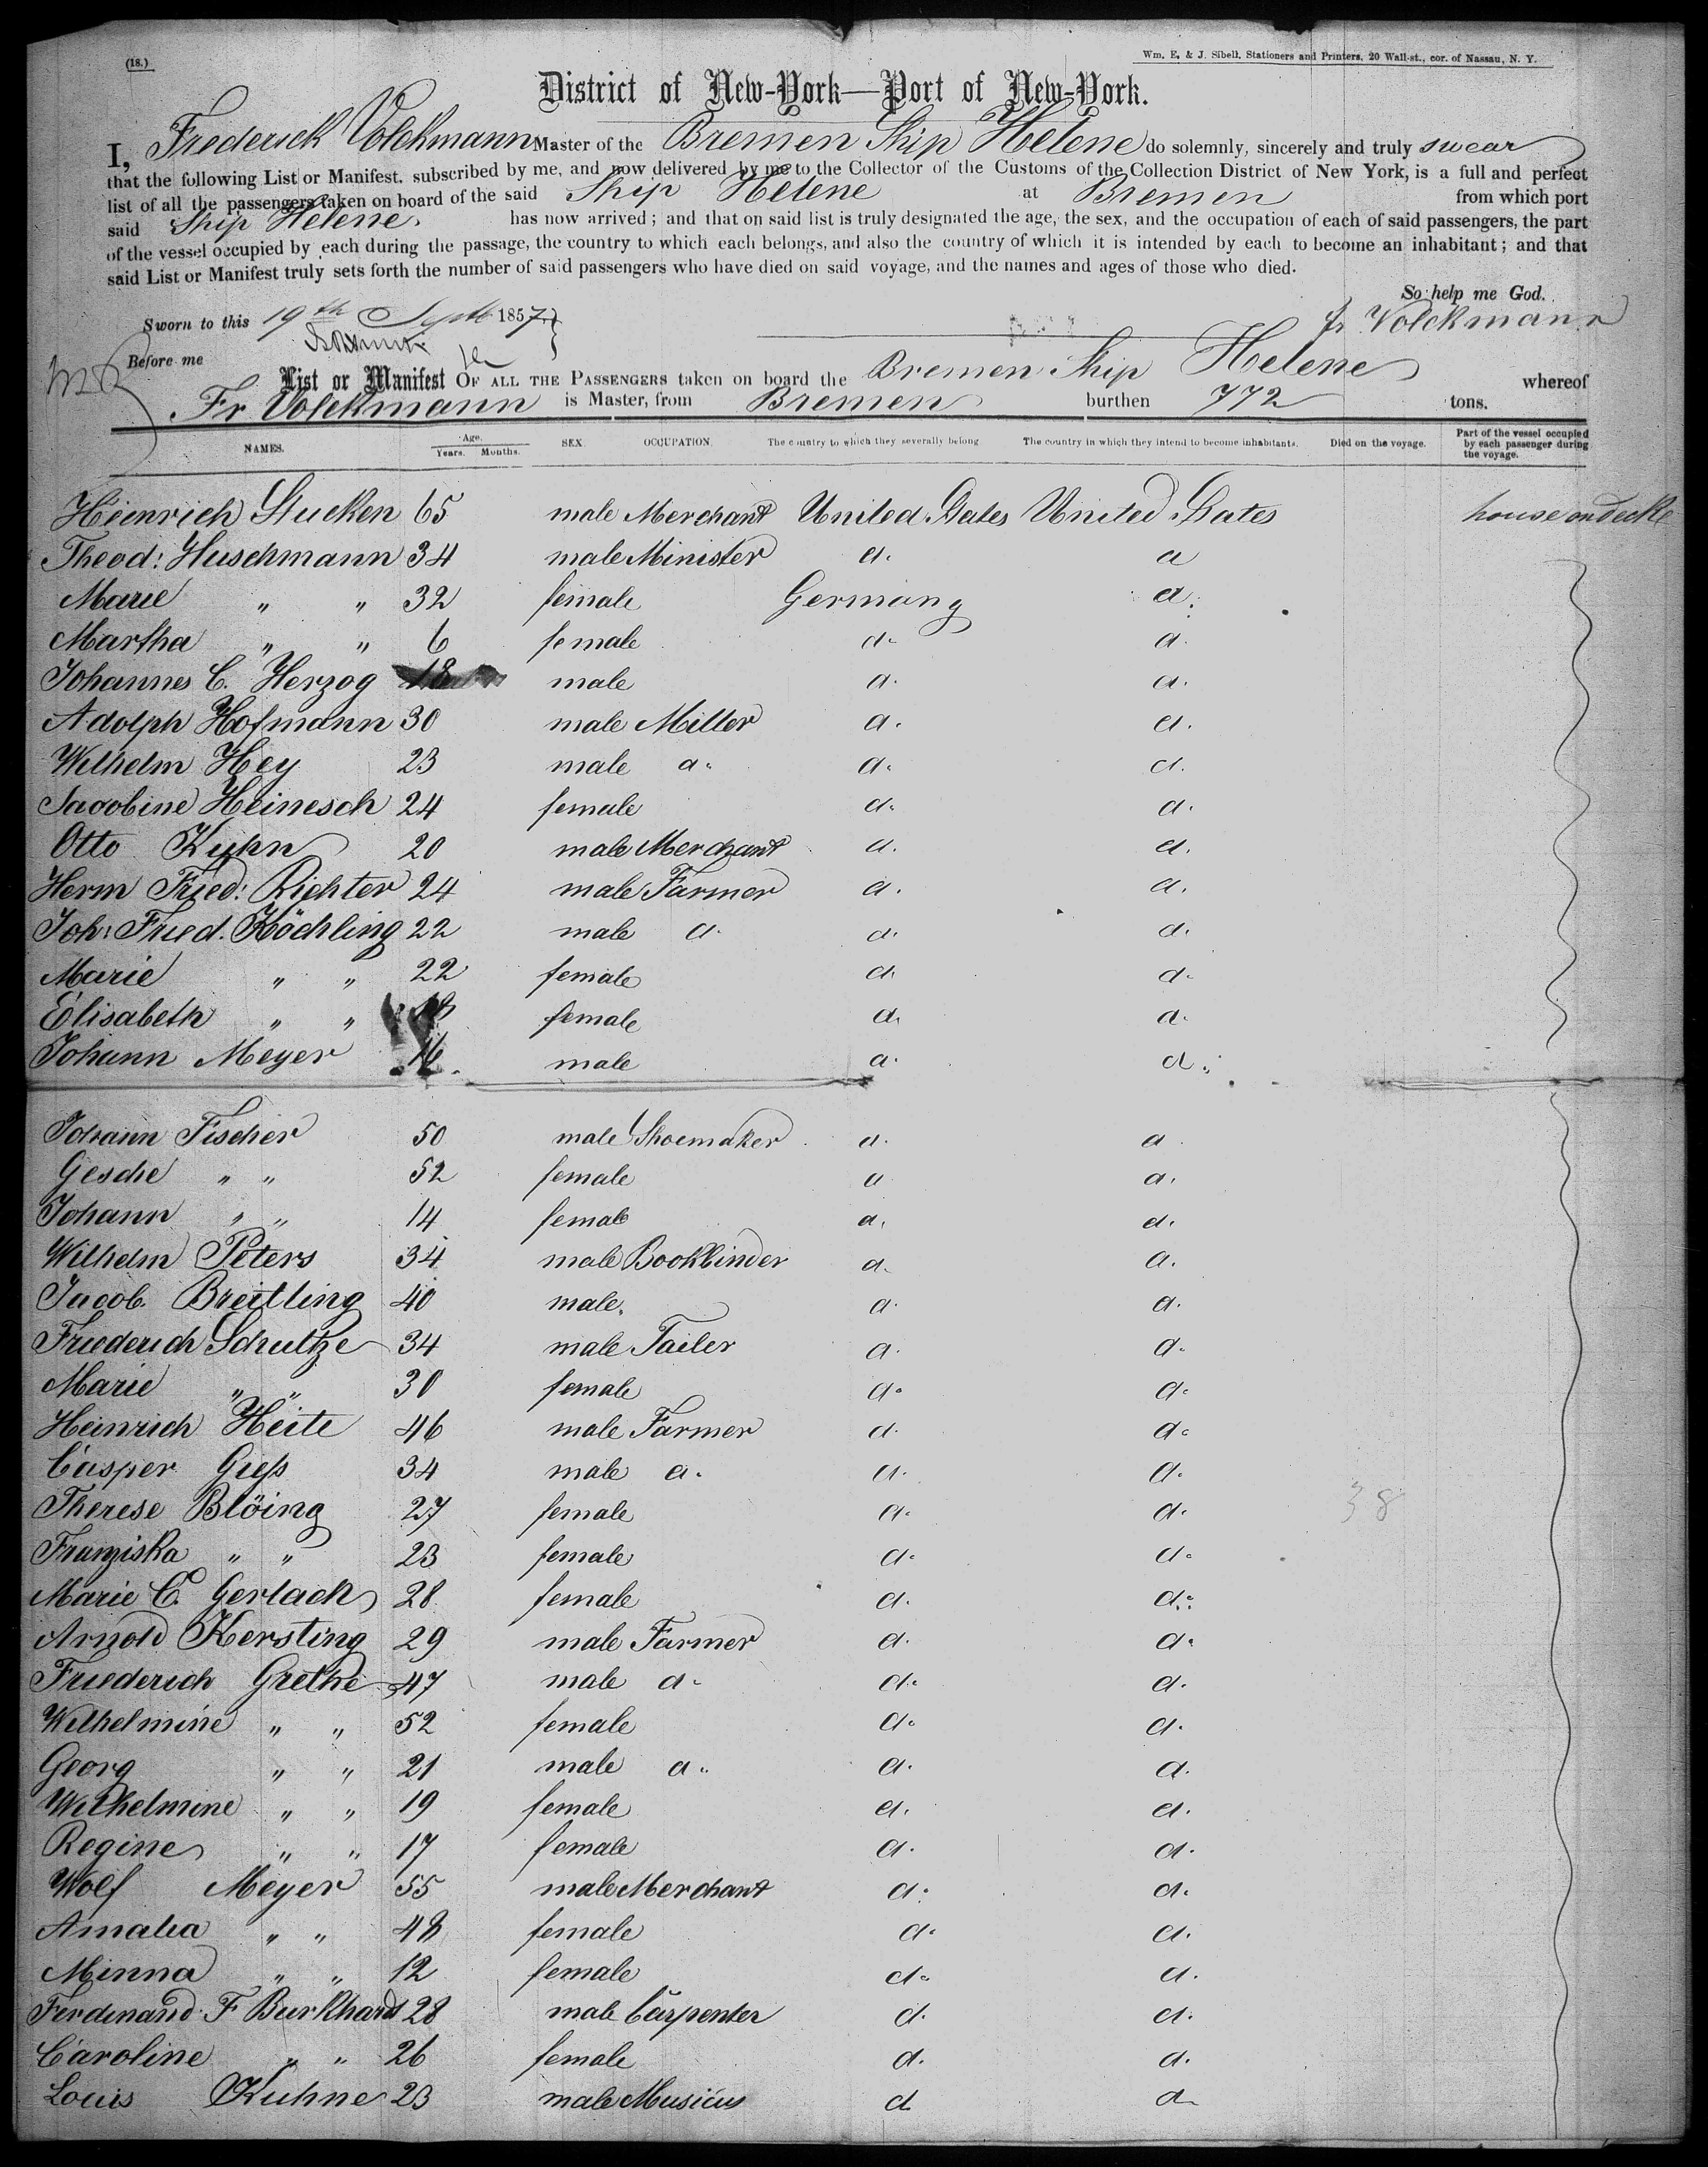 (18.)
Wm. E. & J. Sibell, Stationers and Printers, 20 Wall-st., cor. of Nassau, N. Y.
District of New-York—Port of New-York.
I, Frederick Volckmann Master of the Bremen Ship Helene do solemnly, sincerely and truly swear
that the following List or Manifest. subscribed by me, and now delivered by me to the Collector of the Customs of the Collection District of New York, is a full and perfect
list of all the passengers taken on board of the said Ship Helene at Bremen from which port
said Ship Helene. has now arrived; and that on said list is truly designated the age, the sex, and the occupation of each of said passengers, the part
of the vessel occupied by each during the passage, the country to which each belongs, and also the country of which it is intended by each to become an inhabitant; and that
said List or Manifest truly sets forth the number of said passengers who have died on said voyage, and the names and ages of those who died.
So help me God.
Sworn to this 19th Septb 1857
fr Volckmann
Before me
List or Manifest OF ALL THE PASSENGERS taken on board the Bremen Ship Helene whereof
Fr Volckmann is Master, from Bremen burthen 772 tons.
NAMES. Age. Years. Months. SEX. OCCUPATION. The country to which they severally belong The country in which they intend to become inhabitants. Died on the voyage. Part of the vessel occupied by each passenger during the voyage.
Heinrich Stucken 65 male Merchant United States United States house on decke
Theod: Huschmann 34 male Minister d. d
Marie " " 32 female Germany d.
Martha " " 6 female d. d.
Johannes C. Herzog 18 male d. d.
Adolph Hofmann 30 male Miller d. d.
Wilhelm Hey 23 male d. d. d.
Jacobine Heinesch 24 female d. d.
Otto Kuhn 20 male Merchant d. d.
Herm Fried: Richter 24 male Farmer d. d.
Joh: Fried. Köchling 22 male d. d. d.
Marie " " 22 female d. d.
Elisabeth " " 18 female d. d.
Johann Meyer 16. male d. d.
Johann Fischer 50 male Shoemaker d. d
Gesche " " 52 female d d.
Johann " " 14 female d. d.
Wilhelm Peters 34 male Bookbinder d. d.
Jacob. Breitling 40 male. d. d.
Friederich Schultze 34 male Tailer d. d.
Marie " " 30 female d. d.
Heinrich Heite 46 male Farmer d. d.
Casper Gieß 34 male d. d. d.
Therese Blöing 27 female d. d. 38
Franziska " " 23 female d. d.
Marie C. Gerlach 28 female d. d.
Arnold Kersting 29 male Farmer d. d.
Friederich Grethe 47 male d. d. d.
Wilhelmine " " 52 female d. d.
Georg " " 21 male d. d. d.
Wilhelmine " " 19 female d. d.
Regine " " 17 female d. d.
Wolf Meyer 55 male Merchant d. d.
Amalia " " 48 female d. d.
Minna " " 12 female d. d.
Ferdinand F Burkhard 28 male Carpenter d. d.
Caroline " " 26 female d. d.
Louis Kuhne 23 male Musicus d d